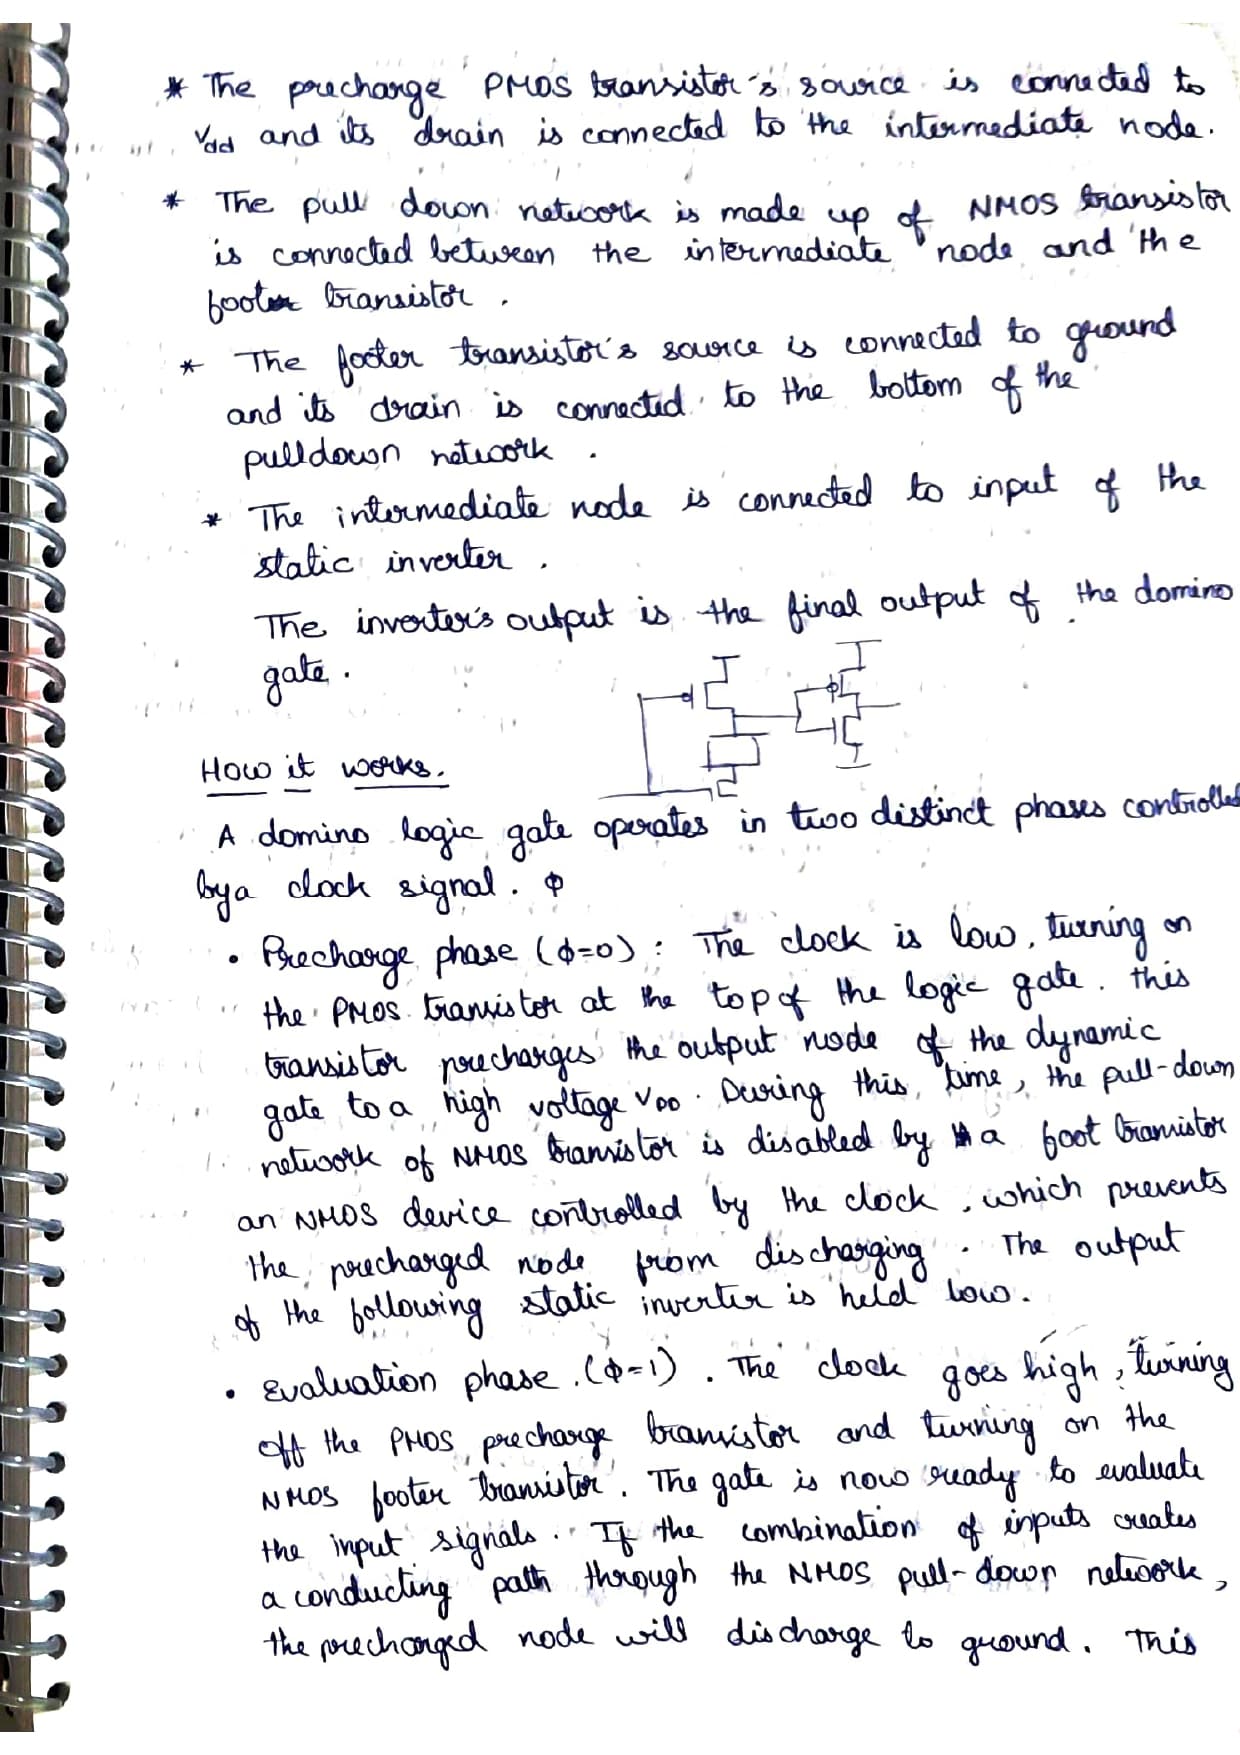 * The precharge PMOS transistor's source is connected to
Vdd and its drain is connected to the intermediate node.
* The pull down network is made up of NMOS transistor
is connected between the intermediate node and the
footer transistor.
* The footer transistor's source is connected to ground
and its drain is connected to the bottom of the
pulldown network.
* The intermediate node is connected to input of the
static inverter.
The inverter's output is the final output of the domino
gate.
How it works.
A domino logic gate operates in two distinct phases controlled
by a clock signal. ϕ
• Precharge phase (ϕ=0): The clock is low, turning on
the PMOS transistor at the top of the logic gate. this
transistor precharges the output node of the dynamic
gate to a high voltage VDD. During this time, the pull-down
network of NMOS transistor is disabled by a foot transistor
an NMOS device controlled by the clock, which prevents
the precharged node from discharging. The output
of the following static inverter is held low.
• Evaluation phase.(ϕ=1). The clock goes high, turning
off the PMOS precharge transistor and turning on the
NMOS footer transistor. The gate is now ready to evaluate
the input signals. If the combination of inputs creates
a conducting path through the NMOS pull-down network,
the precharged node will discharge to ground. This